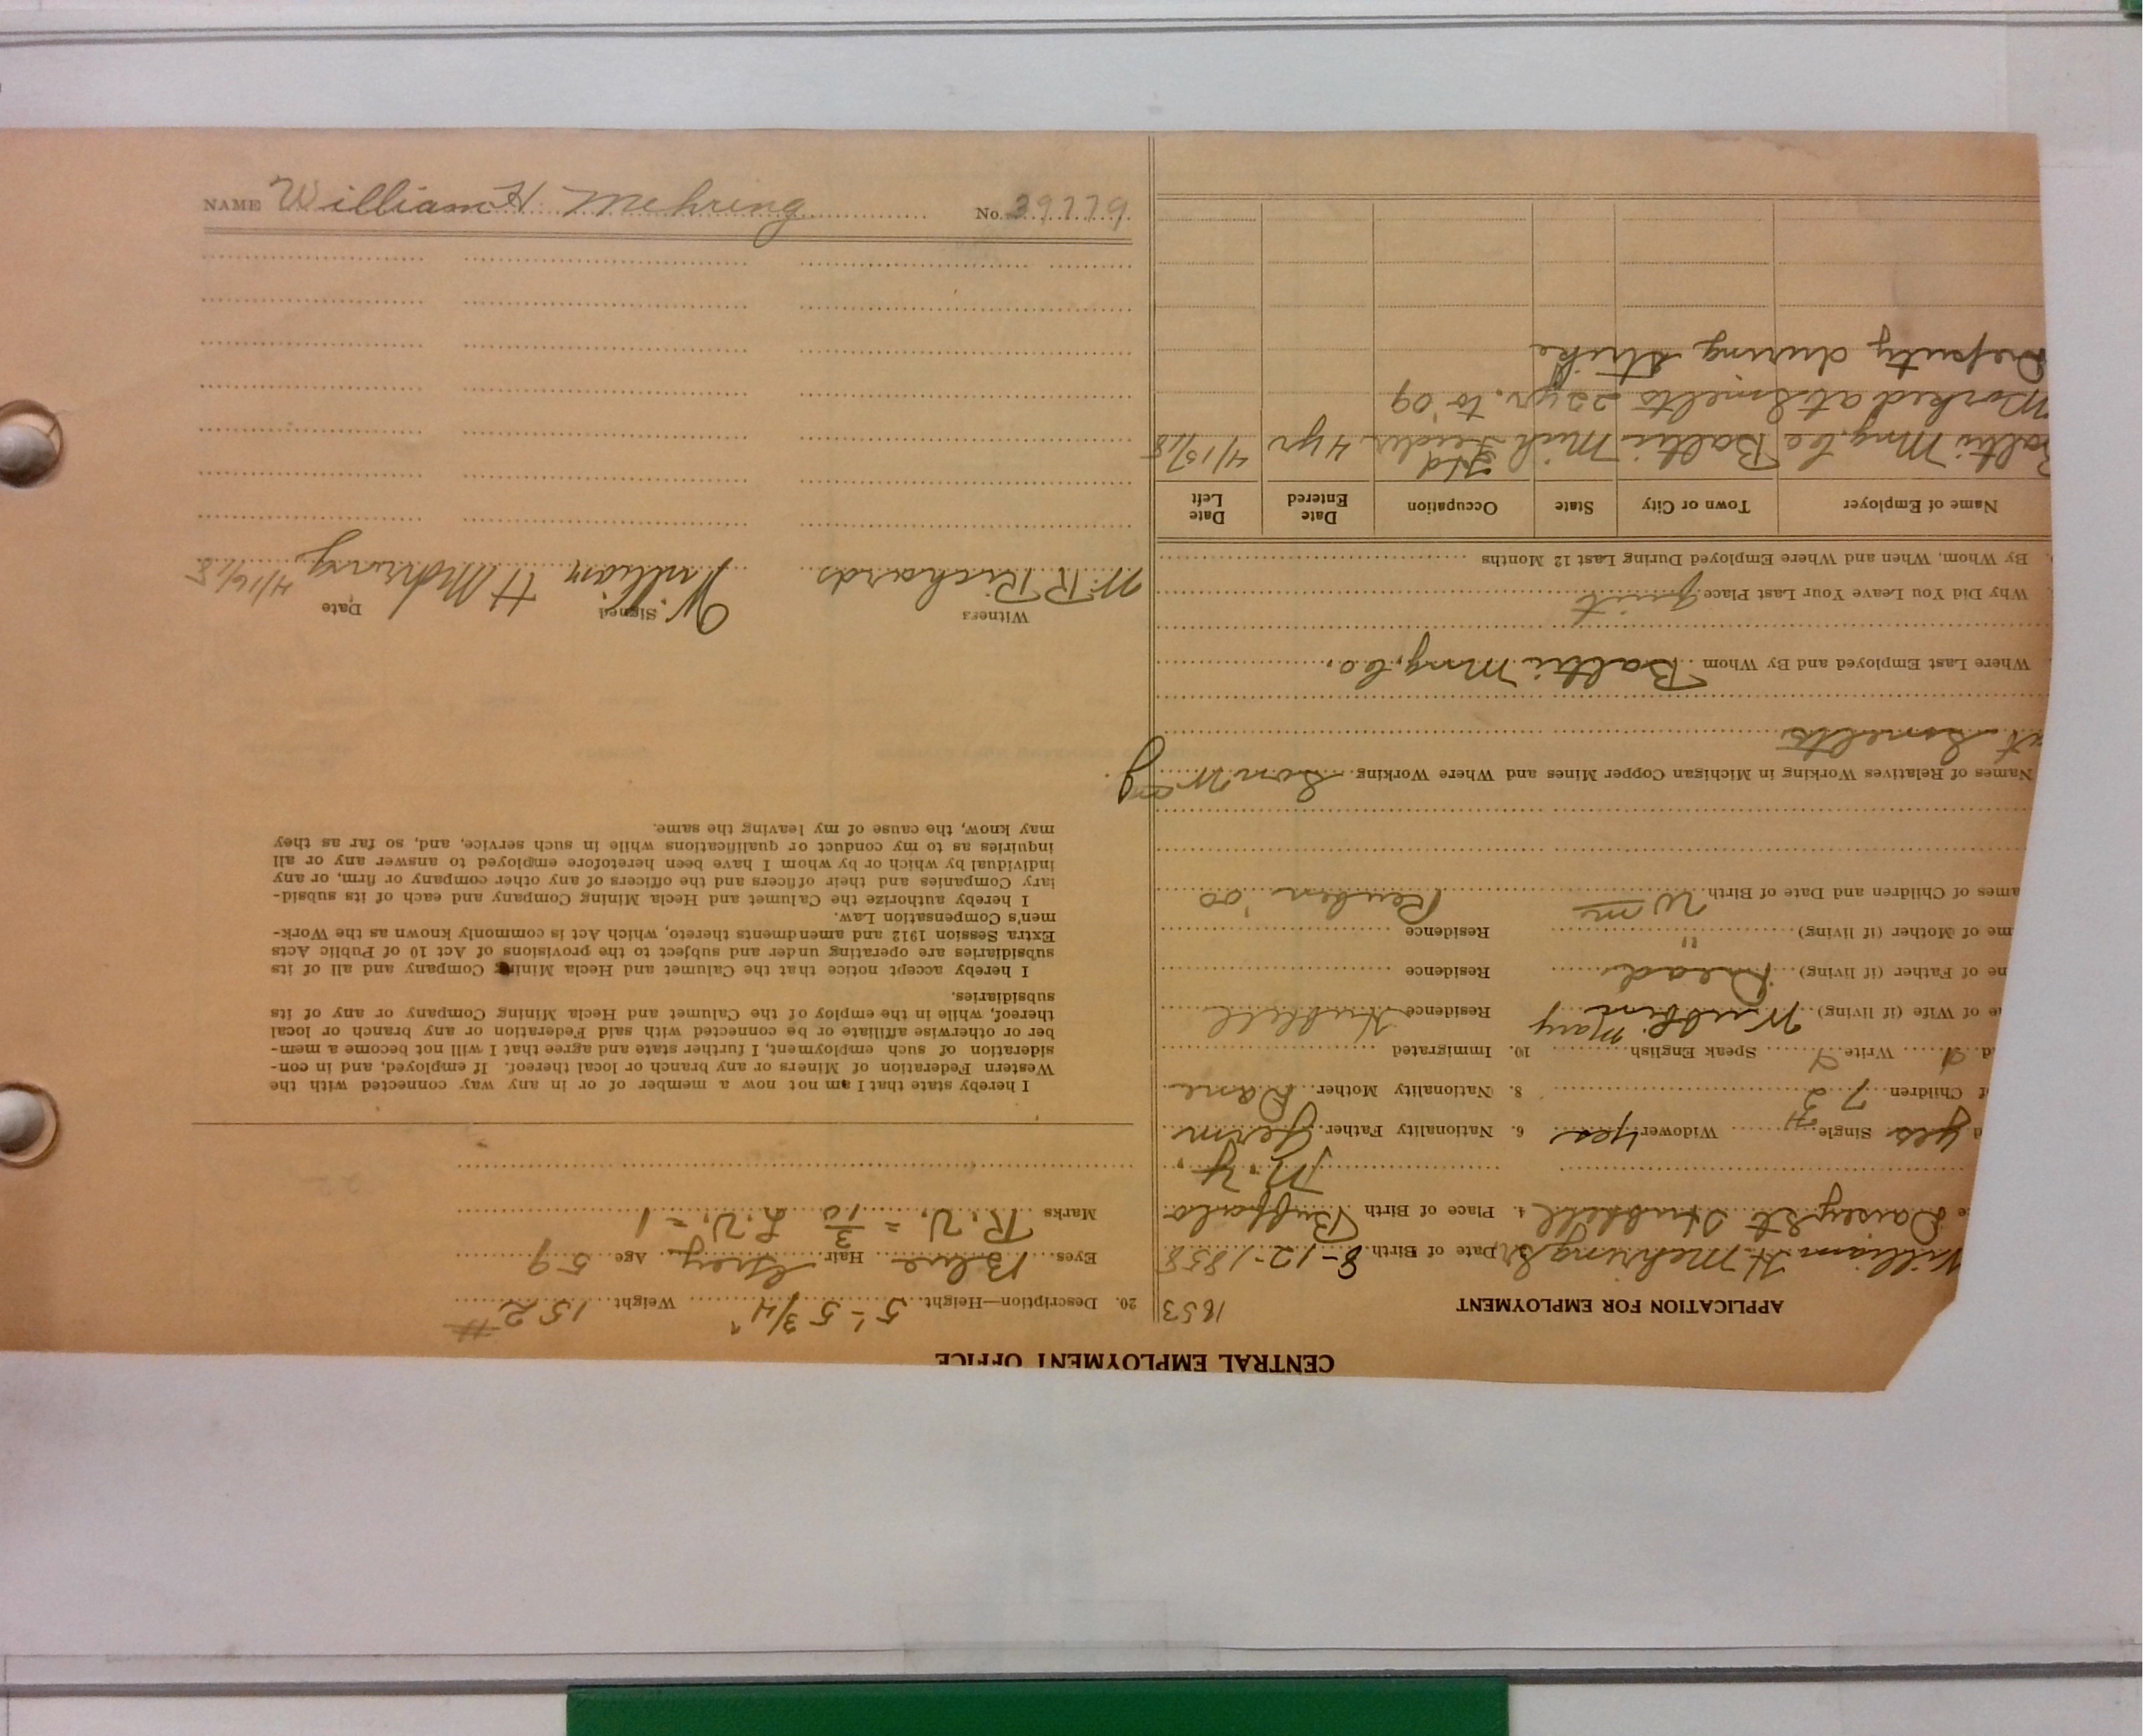 NAME William H. Mehring No. 39779
CENTRAL EMPLOYMENT OFFICE
APPLICATION FOR EMPLOYMENT 1853
William H. Mehring Sr. Date of Birth 8-12-1858
Daisey St Hubbell 4. Place of Birth Buffalo
N.Y.
yes Single Widower yes 6. Nationality Father Germ
f Children 7 8. Nationality Mother Dane
d. Write Speak English 10. Immigrated
e of Wife (if living) Mary Residence Hubbell
ne of Father (if living) Dead Residence
me of Mother (if living) " Residence
ames of Children and Date of Birth Wm Reuben '00
Names of Relatives Working in Michigan Copper Mines and Where Working Son Wm
at Smelts
Where Last Employed and By Whom Baltic Mng. Co.
Why Did You Leave Your Last Place quit
By Whom, When and Where Employed During Last 12 Months
Name of Employer Town or City State Occupation Date Entered Date Left
Baltic Mng. Co Baltic Mich Hd Feeder 4 yr 4/15/18
Worked at Smelts 22 yr. to '09
Deputy during Strike
20. Description—Height 5'-5 3/4" Weight 152 #
Eyes Blue Hair Grey Age 59
Marks R.V. = 3/10 L.V. = 1
I hereby state that I am not now a member of or in any way connected with the
Western Federation of Miners or any branch or local thereof. If employed, and in con-
sideration of such employment, I further state and agree that I will not become a mem-
ber or otherwise affiliate or be connected with said Federation or any branch or local
thereof, while in the employ of the Calumet and Hecla Mining Company or any of its
subsidiaries.
I hereby accept notice that the Calumet and Hecla Mining Company and all of its
subsidiaries are operating under and subject to the provisions of Act 10 of Public Acts
Extra Session 1912 and amendments thereto, which Act is commonly known as the Work-
men's Compensation Law.
I hereby authorize the Calumet and Hecla Mining Company and each of its subsid-
iary Companies and their officers and the officers of any other company or firm, or any
individual by which or by whom I have been heretofore employed to answer any or all
inquiries as to my conduct or qualifications while in such service, and, so far as they
may know, the cause of my leaving the same.
Witness Signed Date
W R Richards William H Mehring 4/16/18